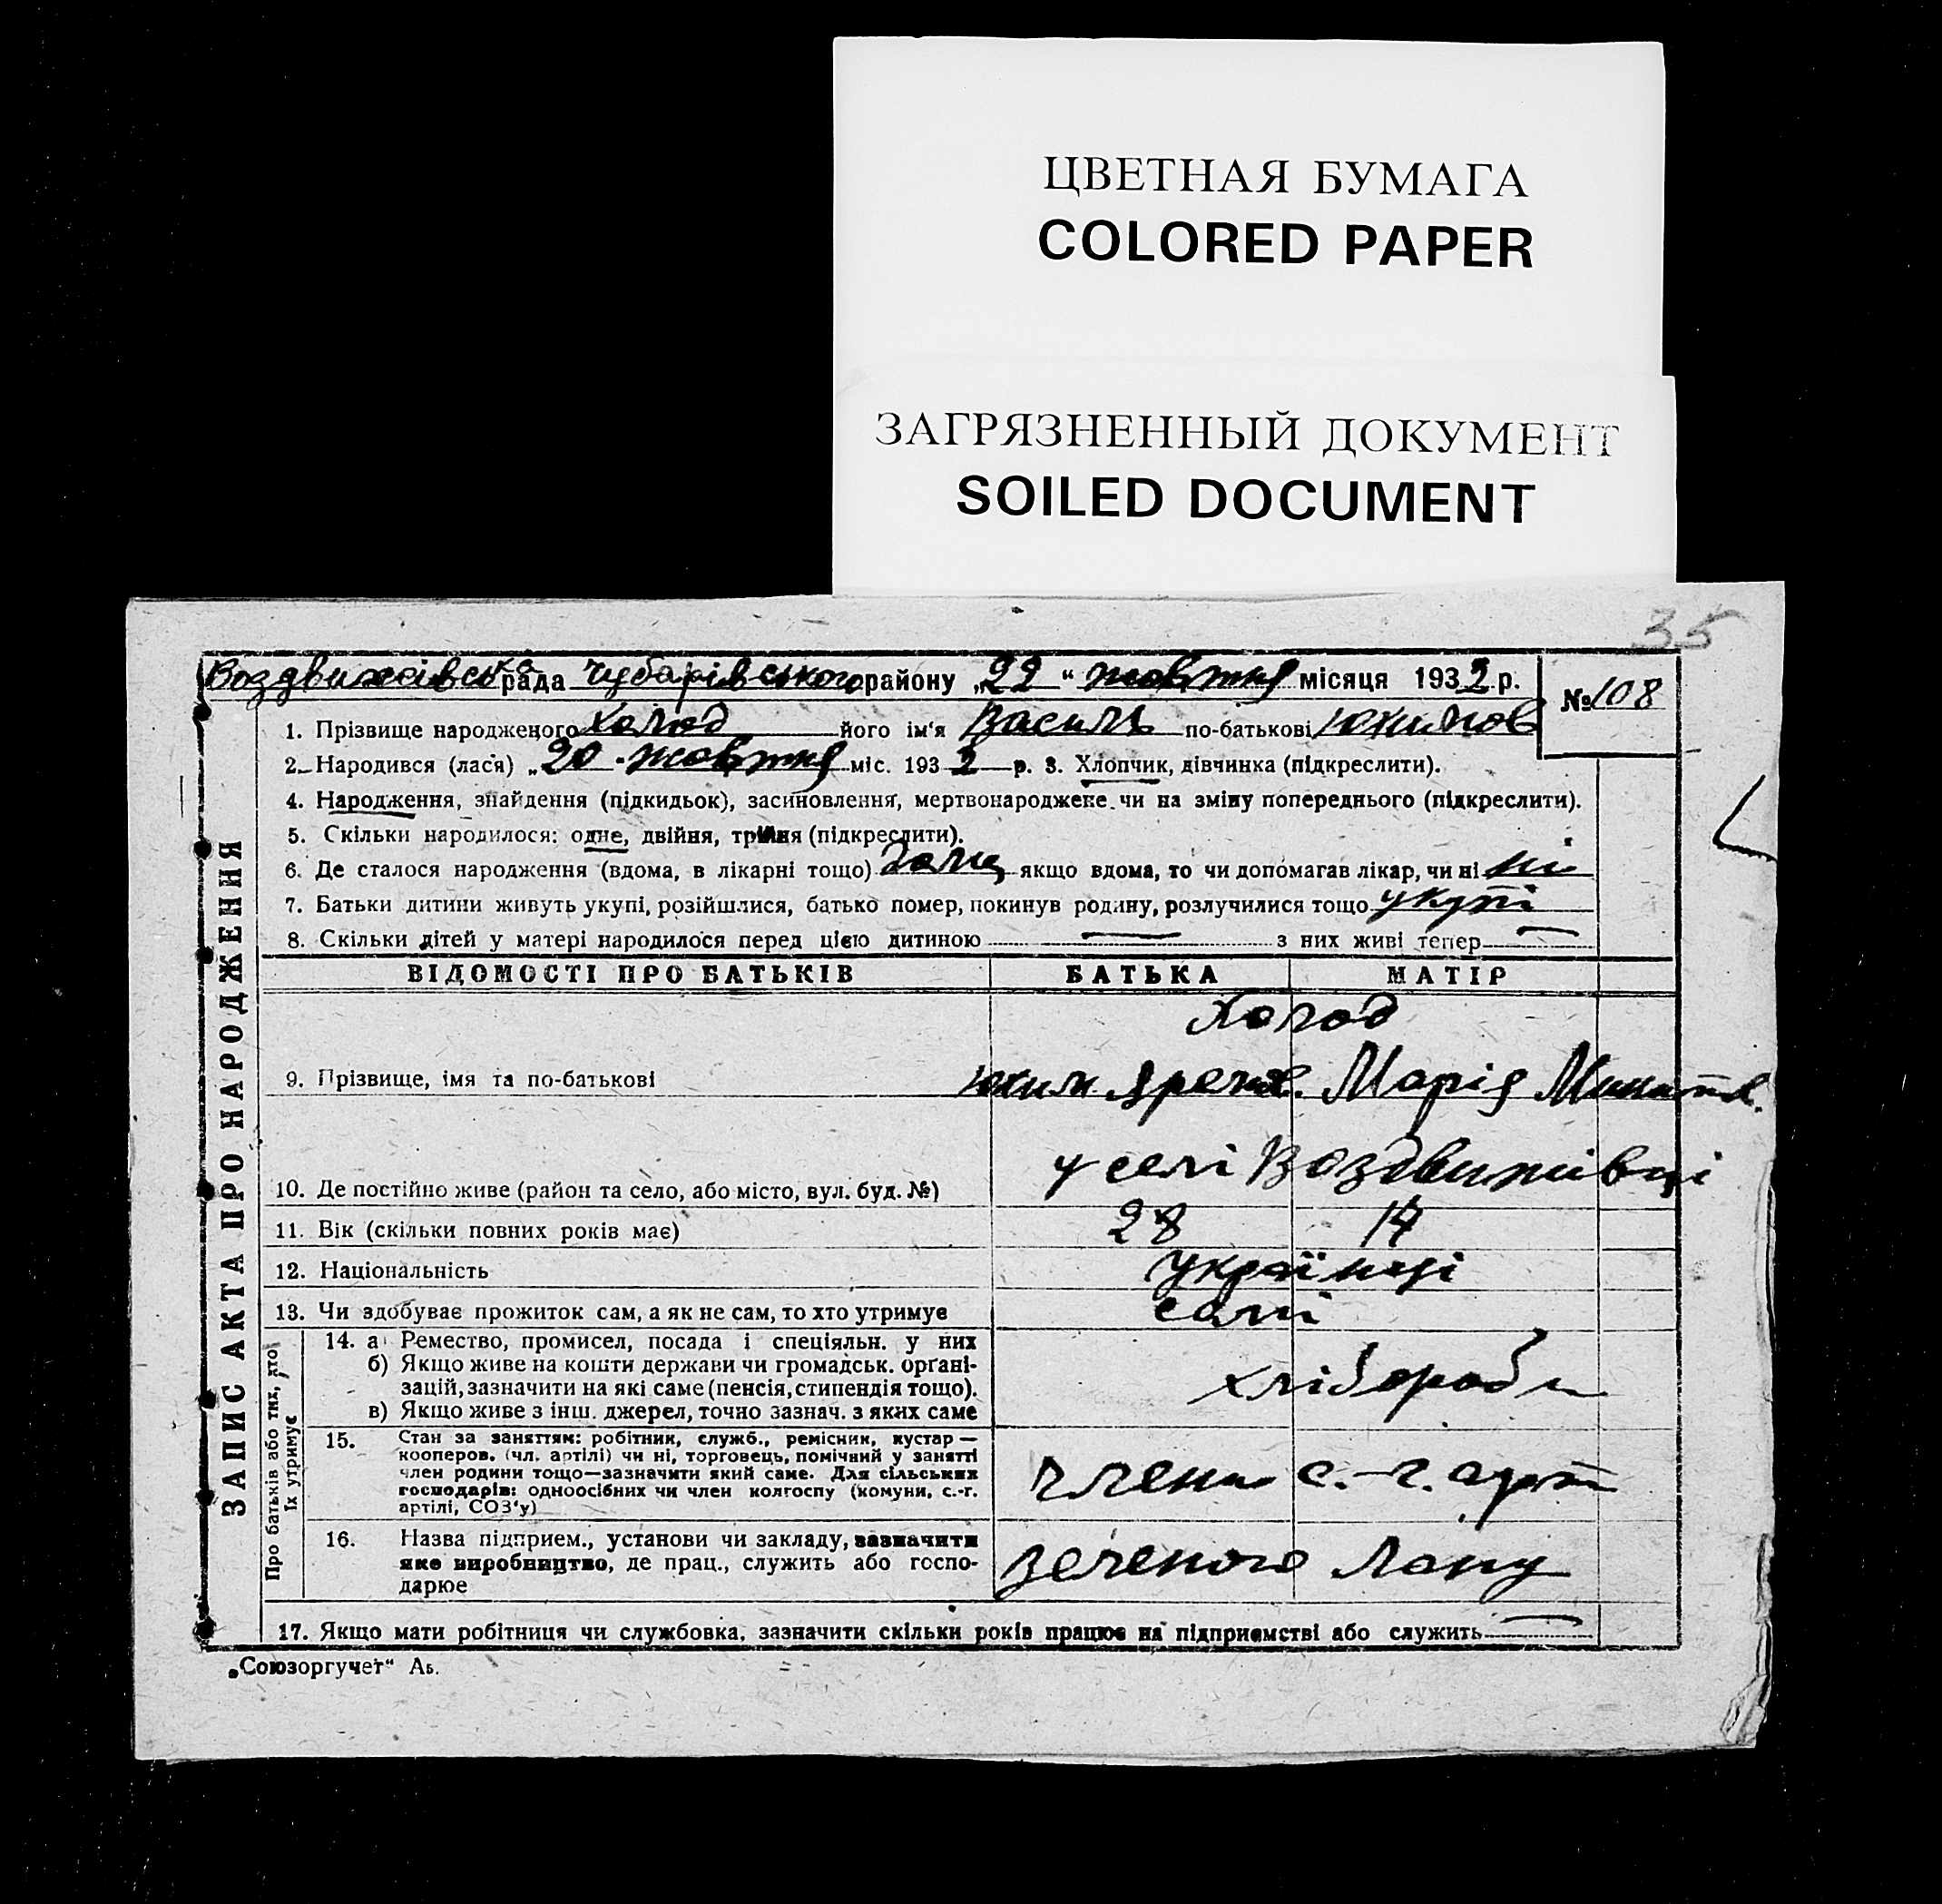 ЦВЕТНАЯ БУМАГА
COLORED PAPER
ЗАГРЯЗНЕННЫЙ ДОКУМЕНТ
SOILED DOCUMENT
35
Воздвижівська рада Чубарівського району „22“ жовтня місяця 1932 р.
№ 108
1. Прізвище народженого Холод його ім‘я Василь по-батькові Юхимов
2. Народився (лася) „20 жовтня міс. 1932 р. 3. Хлопчик, дівчинка (підкреслити).
4. Народження, знайдення (підкидьок), засиновлення, мертвонароджене чи на зміну попереднього (підкреслити).
5. Скільки народилося: одне, двійня, трійня (підкреслити).
6. Де сталося народження (вдома, в лікарні тощо) дома якщо вдома, то чи допомагав лікар, чи ні ні
7. Батьки дитини живуть укупі, розійшлися, батько помер, покинув родину, розлучилися тощо укупі
8. Скільки дітей у матері народилося перед цією дитиною — з них живі тепер —
ЗАПИС АКТА ПРО НАРОДЖЕННЯ
ВІДОМОСТІ ПРО БАТЬКІВ БАТЬКА МАТІР
Холод
9. Прізвище, імя та по-батькові Юхим Марія Микитов.
10. Де постійно живе (район та село, або місто, вул. буд. №) у селі Воздвижівці
11. Вік (скільки повних років має) 28
12. Національність українці
13. Чи здобуває прожиток сам, а як не сам, то хто утримує самі
Про батьків або тих, хто їх утримує
14. а) Ремество, промисел, посада і спеціяльн. у них
б) Якщо живе на кошти держави чи громадськ. орґані-
зацій, зазначити на які саме (пенсія, стипендія тощо).
в) Якщо живе з інш. джерел, точно зазнач. з яких саме
хлібороби
15. Стан за заняттям: робітник, служб., ремісник, кустар—
кооперов. (чл. артілі) чи ні, торговець, помічний у занятті
член родини тощо—зазначити який саме. Для сільських
господарів: одноосібних чи член колгоспу (комуни, с.-г.
артілі, СОЗ‘у)
члени с.-г. арт
16. Назва підприєм., установи чи закладу, зазначити
яке виробництво, де прац., служить або госпо-
дарює
Зеленого Лану
17. Якщо мати робітниця чи службовка, зазначити скільки років працює на підприємстві або служить —
„Союзоргучет“ Аь.